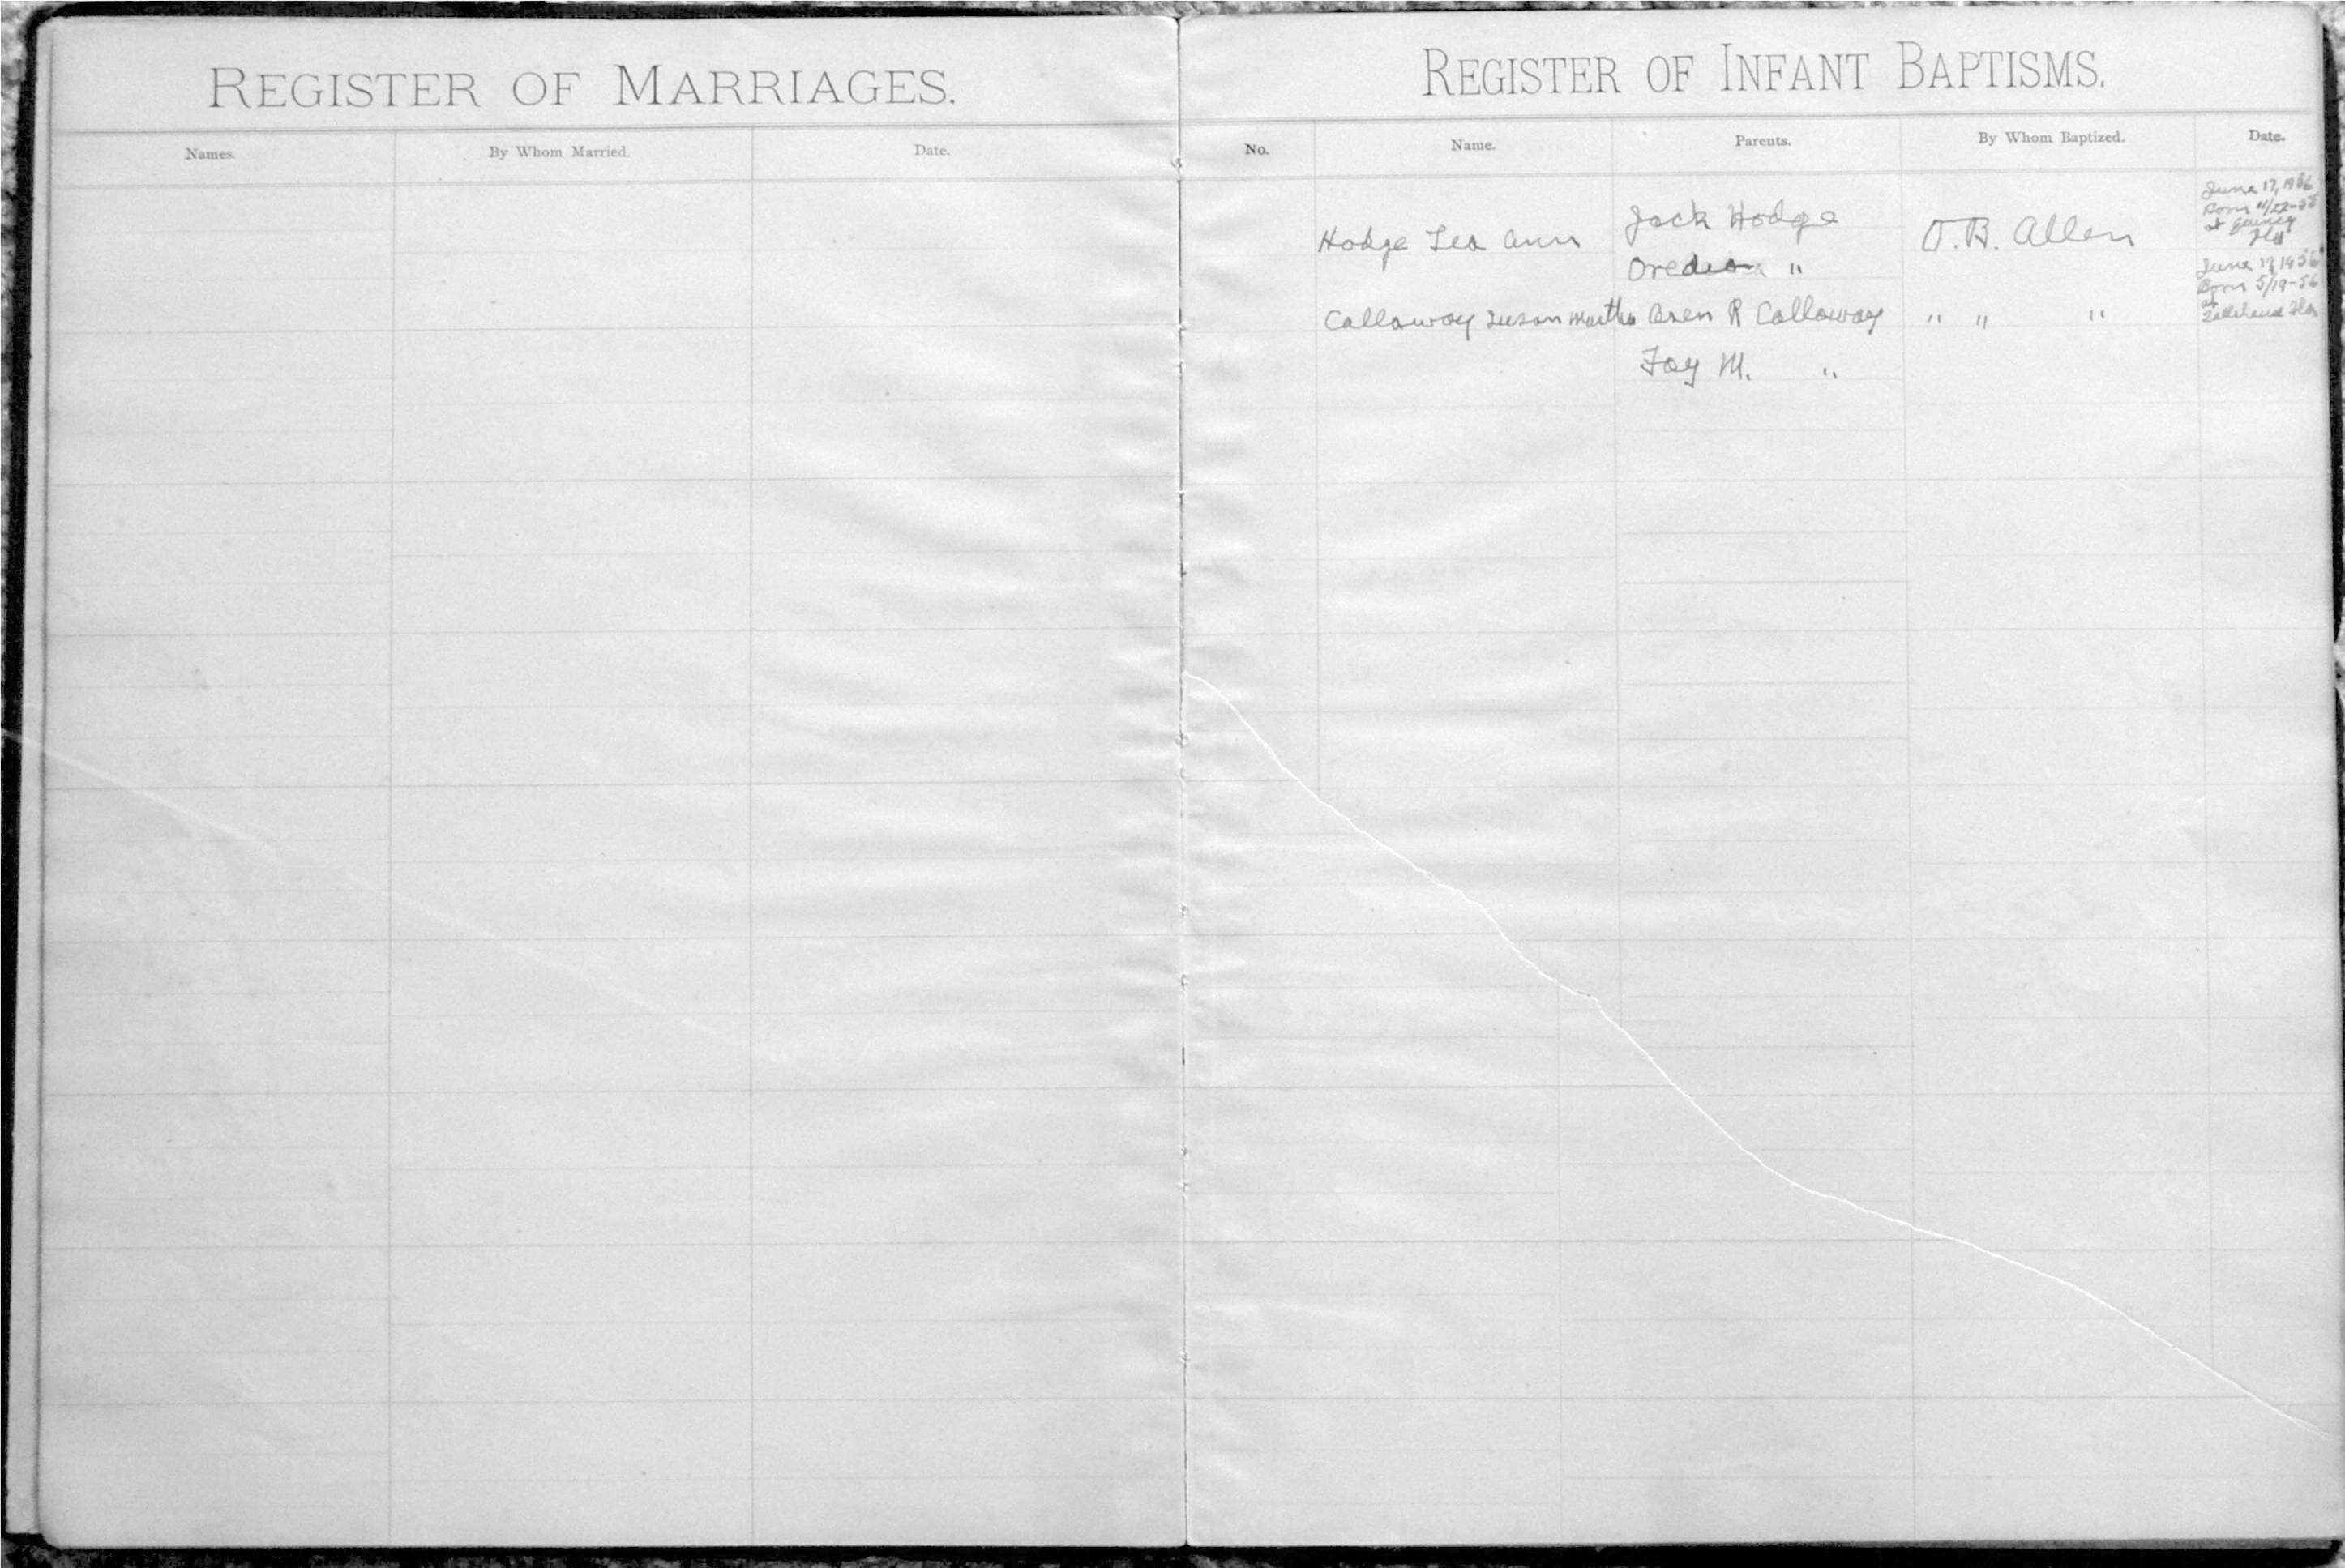 REGISTER OF MARRIAGES.
Names. By Whom Married. Date.
REGISTER OF INFANT BAPTISMS.
No. Name. Parents. By Whom Baptized. Date.
Hodge Lea Ann
Jack Hodge
"
O.B. Allen
June 17, 1956
Born 11/22-55
at Quincy
Fla
Callaway Susan Martha
Oren R Callaway
Fay M. "
" " "
June 17, 1956
Born 5/19-56
at
Fla